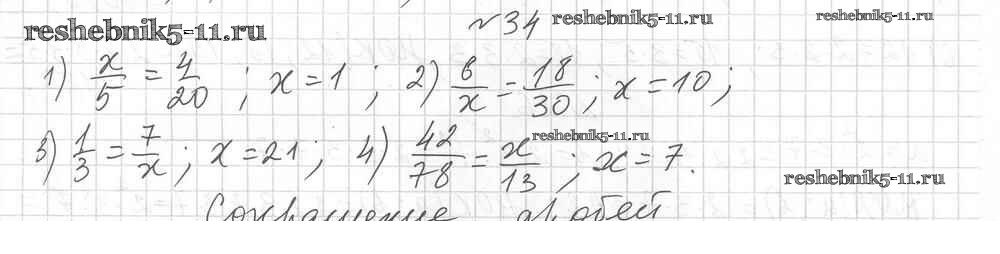 reshebnik5-11.ru
№34
reshebnik5-11.ru
reshebnik5-11.ru
1) x/5 = 4/20 ; x = 1 ; 2) 6/x = 18/30 ; x = 10 ;
reshebnik5-11.ru
3) 1/3 = 7/x ; x = 21 ; 4) 42/78 = x/13 ; x = 7.
reshebnik5-11.ru
Сокращение дробей